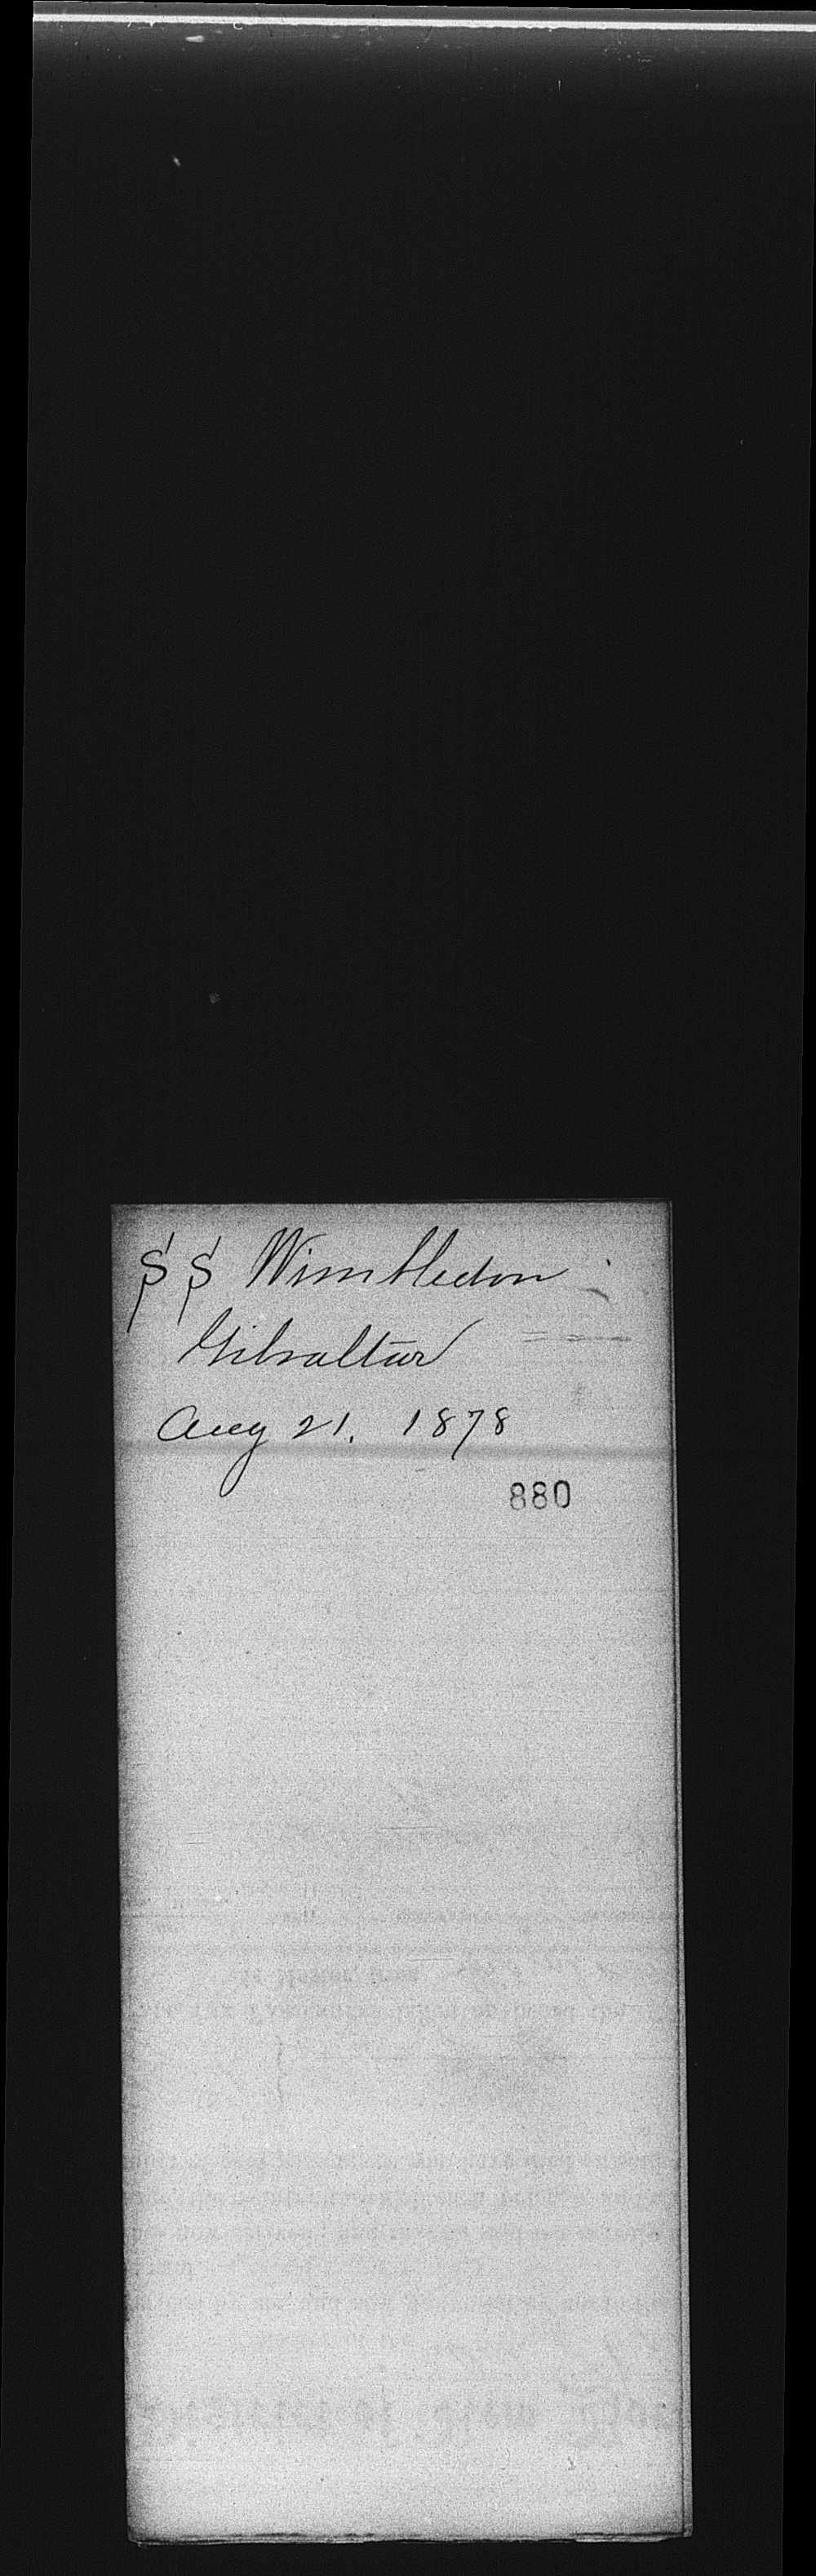 SS Wimbledon
Gibraltar
Aug 21. 1878
880